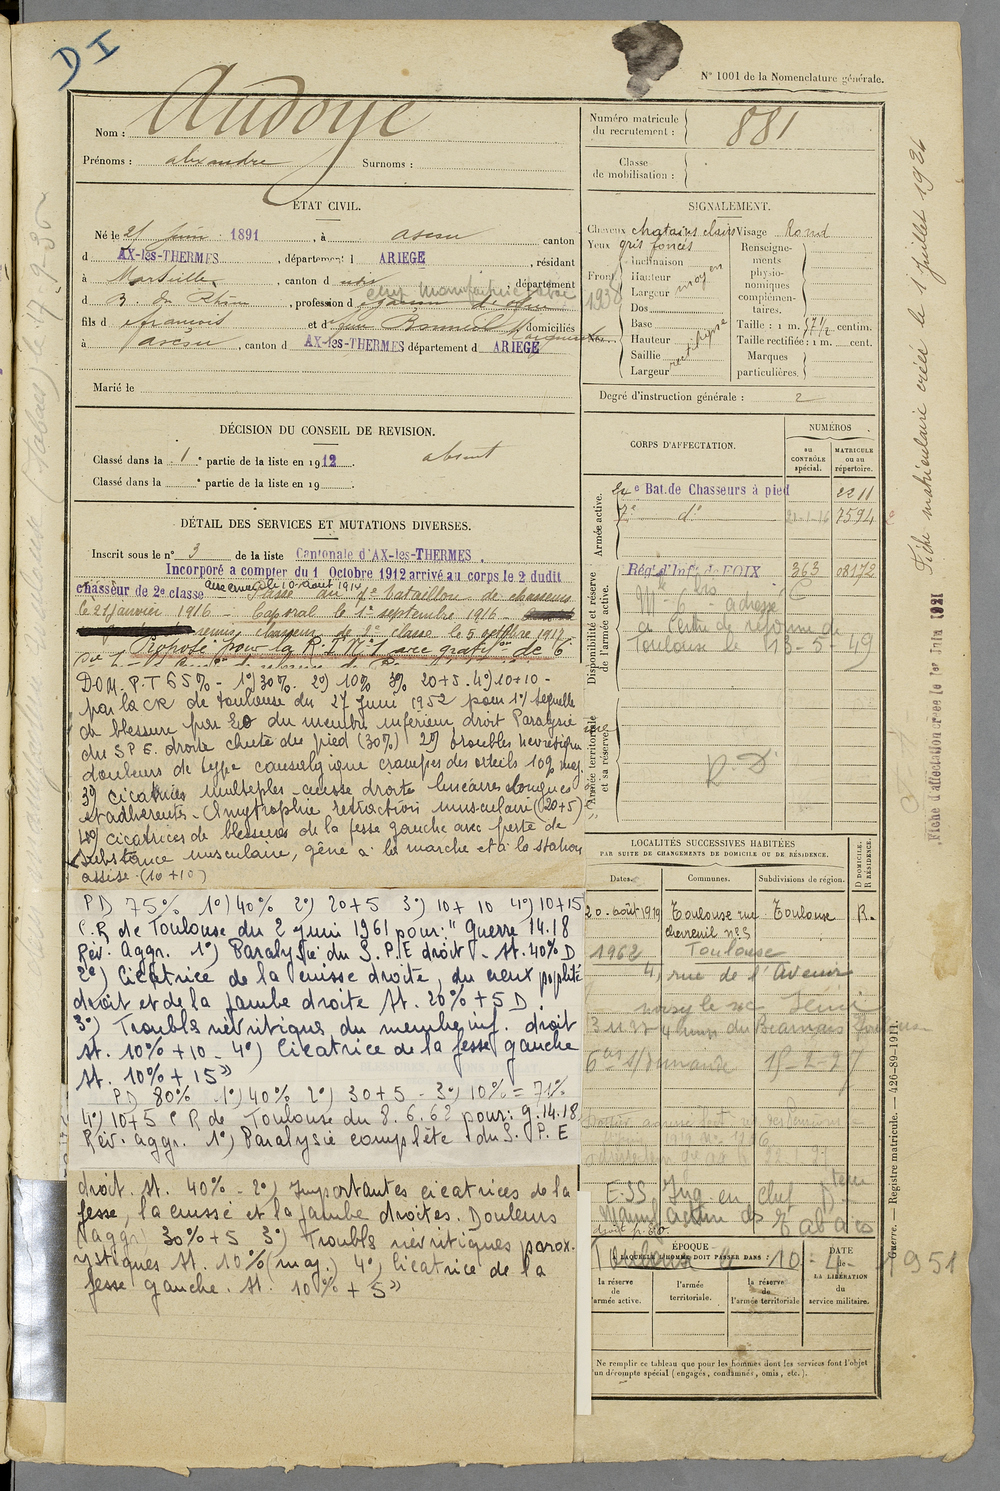 D I
N° 1001 de la Nomenclature générale.
Nom : Audoye
Prénoms : alexandre Surnoms :
Numéro matricule du recrutement : 881
Classe de mobilisation :
ÉTAT CIVIL.
Né le 21 Juin 1891, à ascou canton
d AX-les-THERMES, département d ARIEGE, résidant
à Marseille, canton d udis, département
d B. du Rhône, profession d garçon d'
fils d françois et d Bonneil domiciliés
à ascou, canton d AX-les-THERMES département d ARIEGE
Marié le
SIGNALEMENT.
Cheveux chatains clairs Visage Rond
Yeux gris foncés
Front
Inclinaison
Hauteur
Largeur
moyen
Nez
Dos
Base
Hauteur
Saillie
Largeur
rectiligne
Renseignements physionomiques complémentaires.
Taille : 1 m. 71 1/2 centim.
Taille rectifiée : 1 m. cent.
Marques particulières.
Degré d'instruction générale : 2
DÉCISION DU CONSEIL DE REVISION.
Classé dans la 1e partie de la liste en 1912. absent
Classé dans la e partie de la liste en 19
DÉTAIL DES SERVICES ET MUTATIONS DIVERSES.
Inscrit sous le n° 3 de la liste Cantonale d'AX-les-THERMES.
Incorporé a compter du 1 Octobre 1912 arrivé au corps le 2 dudit
chasseur de 2e classe Passé au 7e bataillon de chasseurs
le 21 janvier 1916 - Caporal le 1er septembre 1916
remis chasseur de 2e classe le 5 octobre 1917
Proposé pour la R.T. N°1 avec gratif. de 6
DOM. P.T 65% - 1°) 30% 2°) 10% 3°) 20+5 - 4°) 10+10 -
par la CR de Toulouse du 27 Juin 1952 pour 1°) séquelle
de blessure par EO du membre inférieur droit Paralysie
du SPE. droite chute du pied (30%) 2°) troubles nevritiques
douleurs de type causalgique crampes des orteils 10%
3°) cicatrices multiples cuisse droite linéaires longues
et adhérentes - Amyotrophie rétraction musculaire (20+5)
4°) cicatrices de blessures de la fesse gauche avec perte de
substance musculaire, gêne à la marche et à la station
assise. (10+10)
PD 75% 1°) 40% 2°) 20+5 3°) 10+10 4°) 10+15
C.R de Toulouse du 2 juin 1961 pour: " Guerre 14.18
Rév. Aggr. 1°) Paralysie du S.P.E droit - St. 40% D
2°) Cicatrice de la cuisse droite, du creux poplité
droit et de la jambe droite St. 20% + 5 D
3°) Troubles névritiques du membre inf. droit
St. 10% + 10 - 4°) Cicatrice de la fesse gauche
St. 10% + 15 »
PD 80% 1°) 40% 2°) 30+5 - 3°) 10% = 71%
4°) 10+5 C R de Toulouse du 8.6.62 pour: g.14.18
Rév. aggr. 1°) Paralysie complète du S.P.E
droit. St. 40% - 2°) Importantes cicatrices de la
fesse, la cuisse et la jambe droites. Douleurs
(aggr) 30% + 5 3°) Troubles névritiques parox.
ystiques St. 10% (maj.) 4°) Cicatrice de la
fesse gauche. St. 10% + 5 »
CORPS D'AFFECTATION.
NUMÉROS
au CONTRÔLE spécial.
MATRICULE ou au répertoire.
Armée active.
2e Bat. de Chasseurs à pied 2211
7e d° 21-1-16 7594
Disponibilité et réserve de l'armée active.
Rég. d'Inf. de FOIX 363 08172
adressé
au Centre de réforme de
Toulouse le 13-5-49
Armée territoriale et sa réserve.
R.D
LOCALITÉS SUCCESSIVES HABITÉES
PAR SUITE DE CHANGEMENTS DE DOMICILE OU DE RÉSIDENCE.
Dates. Communes. Subdivisions de région. D DOMICILE. R RÉSIDENCE.
20-août 1919 Toulouse rue chevreuil n°3 Toulouse R.
1962 Toulouse
4, rue de l'Avenir
noisy le sec Seine
E-SS Ing. en chef
Manufacture des Tabacs
Toulouse 10-4-1951
ÉPOQUE
À LAQUELLE L'HOMME DOIT PASSER DANS :
la réserve de l'armée active.
l'armée territoriale.
la réserve de l'armée territoriale
DATE de LA LIBÉRATION du service militaire.
Ne remplir ce tableau que pour les hommes dont les services font l'objet
d'un décompte spécial (engagés, condamnés, omis, etc.).
Fiche matriculaire créée le 1 juillet 1926
Fiche d'affectation créée le 1er Juin 1921
Guerre. — Registre matricule. — 426-89-1911.